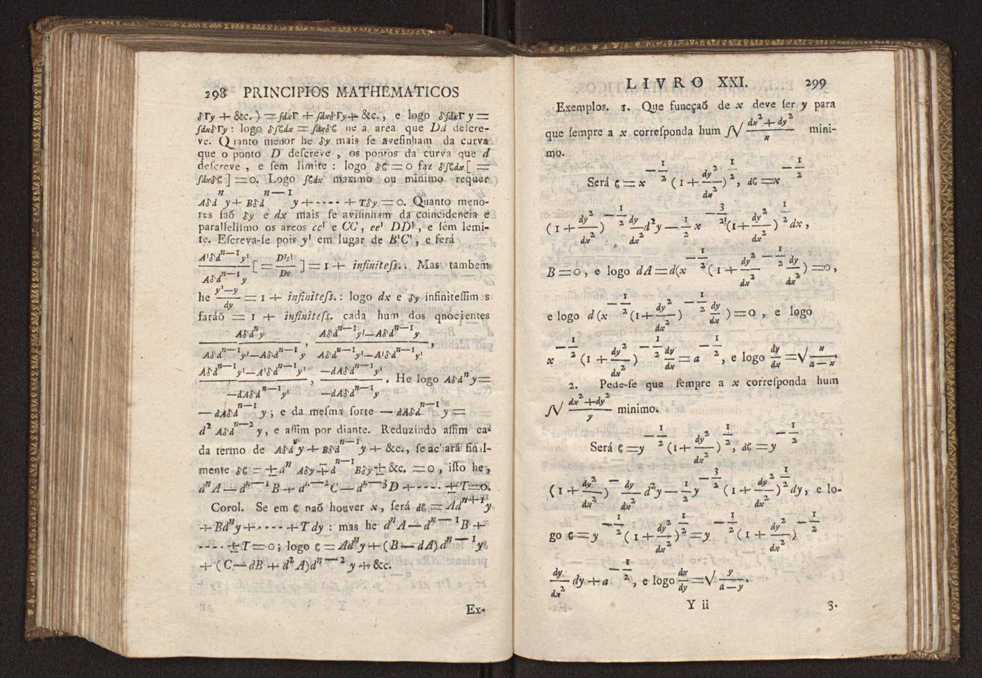 298 PRINCIPIOS MATHEMATICOS
δΓy + &c.) = ſdxΓ + ſdxδΓy + &c., e logo δſdxΓy =
ſdxδΓy : logo δſζdx = ſdxδζ he a area que Dd deſcre-
ve. Quanto menor he δy mais ſe aveſinham da curva
que o ponto D deſcreve, os pontos da curva que d
deſcreve, e ſem limite: logo δζ = 0 faz δſζdx [ =
ſdxδζ ] = 0. Logo ſζdx maximo ou minimo requer
Aδdⁿy + Bδdⁿ⁻¹y + ···· + Tδy = 0. Quanto meno-
res ſaõ δy e dx mais ſe aviſinham da coincidencia e
paralleliſmo os arcos cc¹ e CC¹, ee¹ DD¹, e ſem lemi-
te. Eſcreva-ſe pois y¹ em lugar de B¹C¹, e ſerá
A¹δdⁿ⁻¹y¹ / Aδdⁿ⁻¹y [ = D¹e¹ / De ] = 1 + infiniteſs.. Mas tambem
he y¹—y / dy = 1 + infiniteſs.: logo dx e δy infiniteſſim s
faráõ = 1 + infiniteſs. cada hum dos quocientes
Aδdⁿy / Aδdⁿ⁻¹y¹—Aδdⁿ⁻¹y , Aδdⁿ⁻¹y¹—Aδdⁿ⁻¹y / Aδdⁿ⁻¹y¹—A¹δdⁿ⁻¹y¹ ,
Aδdⁿ⁻¹y¹—A¹δdⁿ⁻¹y¹ / —dAδdⁿ⁻¹y¹ , —dAδdⁿ⁻¹y¹ / —dAδdⁿ⁻¹y . He logo Aδdⁿy =
— dAδdⁿ⁻¹y ; e da meſma ſorte — dAδdⁿ⁻¹y =
d²Aδdⁿ⁻²y, e aſſim por diante. Reduzindo aſſim ca-
da termo de Aδdⁿy + Bδdⁿ⁻¹y + &c., ſe achará final-
mente δζ = ± dⁿAδy ∓ dⁿ⁻¹Bδy ± &c. = 0, iſto he,
dⁿA — dⁿ⁻¹B + dⁿ⁻²C — dⁿ⁻³D + ···· ± T = 0.
Corol. Se em ζ naõ houver x, ſerá dζ = Adⁿ⁺¹y
+ Bdⁿy + ···· + Tdy : mas he dⁿA — dⁿ⁻¹B +
···· ± T = 0 ; logo ζ = Adⁿy + (B — dA) dⁿ⁻¹y
+ (C — dB + d²A) dⁿ⁻²y + &c.
Ex-
LIVRO XXI. 299
Exemplos. 1. Que funcçaõ de x deve ſer y para
que ſempre a x correſponda hum ſ√ dx² + dy² / x mini-
mo.
Será ζ = x^(—1/2) (1 + dy²/dx²)^(1/2), dζ = x^(—1/2)
(1 + dy²/dx²)^(—1/2) dy/dx² d²y — 1/2 x^(—3/2) (1 + dy²/dx²)^(1/2) dx,
B = 0, e logo dA = d(x^(—1/2) (1 + dy²/dx²)^(—1/2) dy/dx²) = 0,
e logo d(x^(—1/2) (1 + dy²/dx²)^(—1/2) dy/dx) = 0, e logo
x^(—1/2) (1 + dy²/dx²)^(—1/2) dy/dx = a^(—1/2), e logo dy/dx = √ x / a—x .
2. Pede-ſe que ſempre a x correſponda hum
ſ√ dx² + dy² / y minimo.
Será ζ = y^(—1/2) (1 + dy²/dx²)^(1/2), dζ = y^(—1/2)
(1 + dy²/dx²)^(—1/2) dy/dx² d²y — 1/2 y^(—3/2) (1 + dy²/dx²)^(1/2) dy, e lo-
go ζ = y^(—1/2) (1 + dy²/dx²)^(1/2) = y^(—1/2) (1 + dy²/dx²)^(—1/2)
dy/dx² dy + a^(—1/2), e logo dx/dy = √ y / a—y .
Y ii 3.